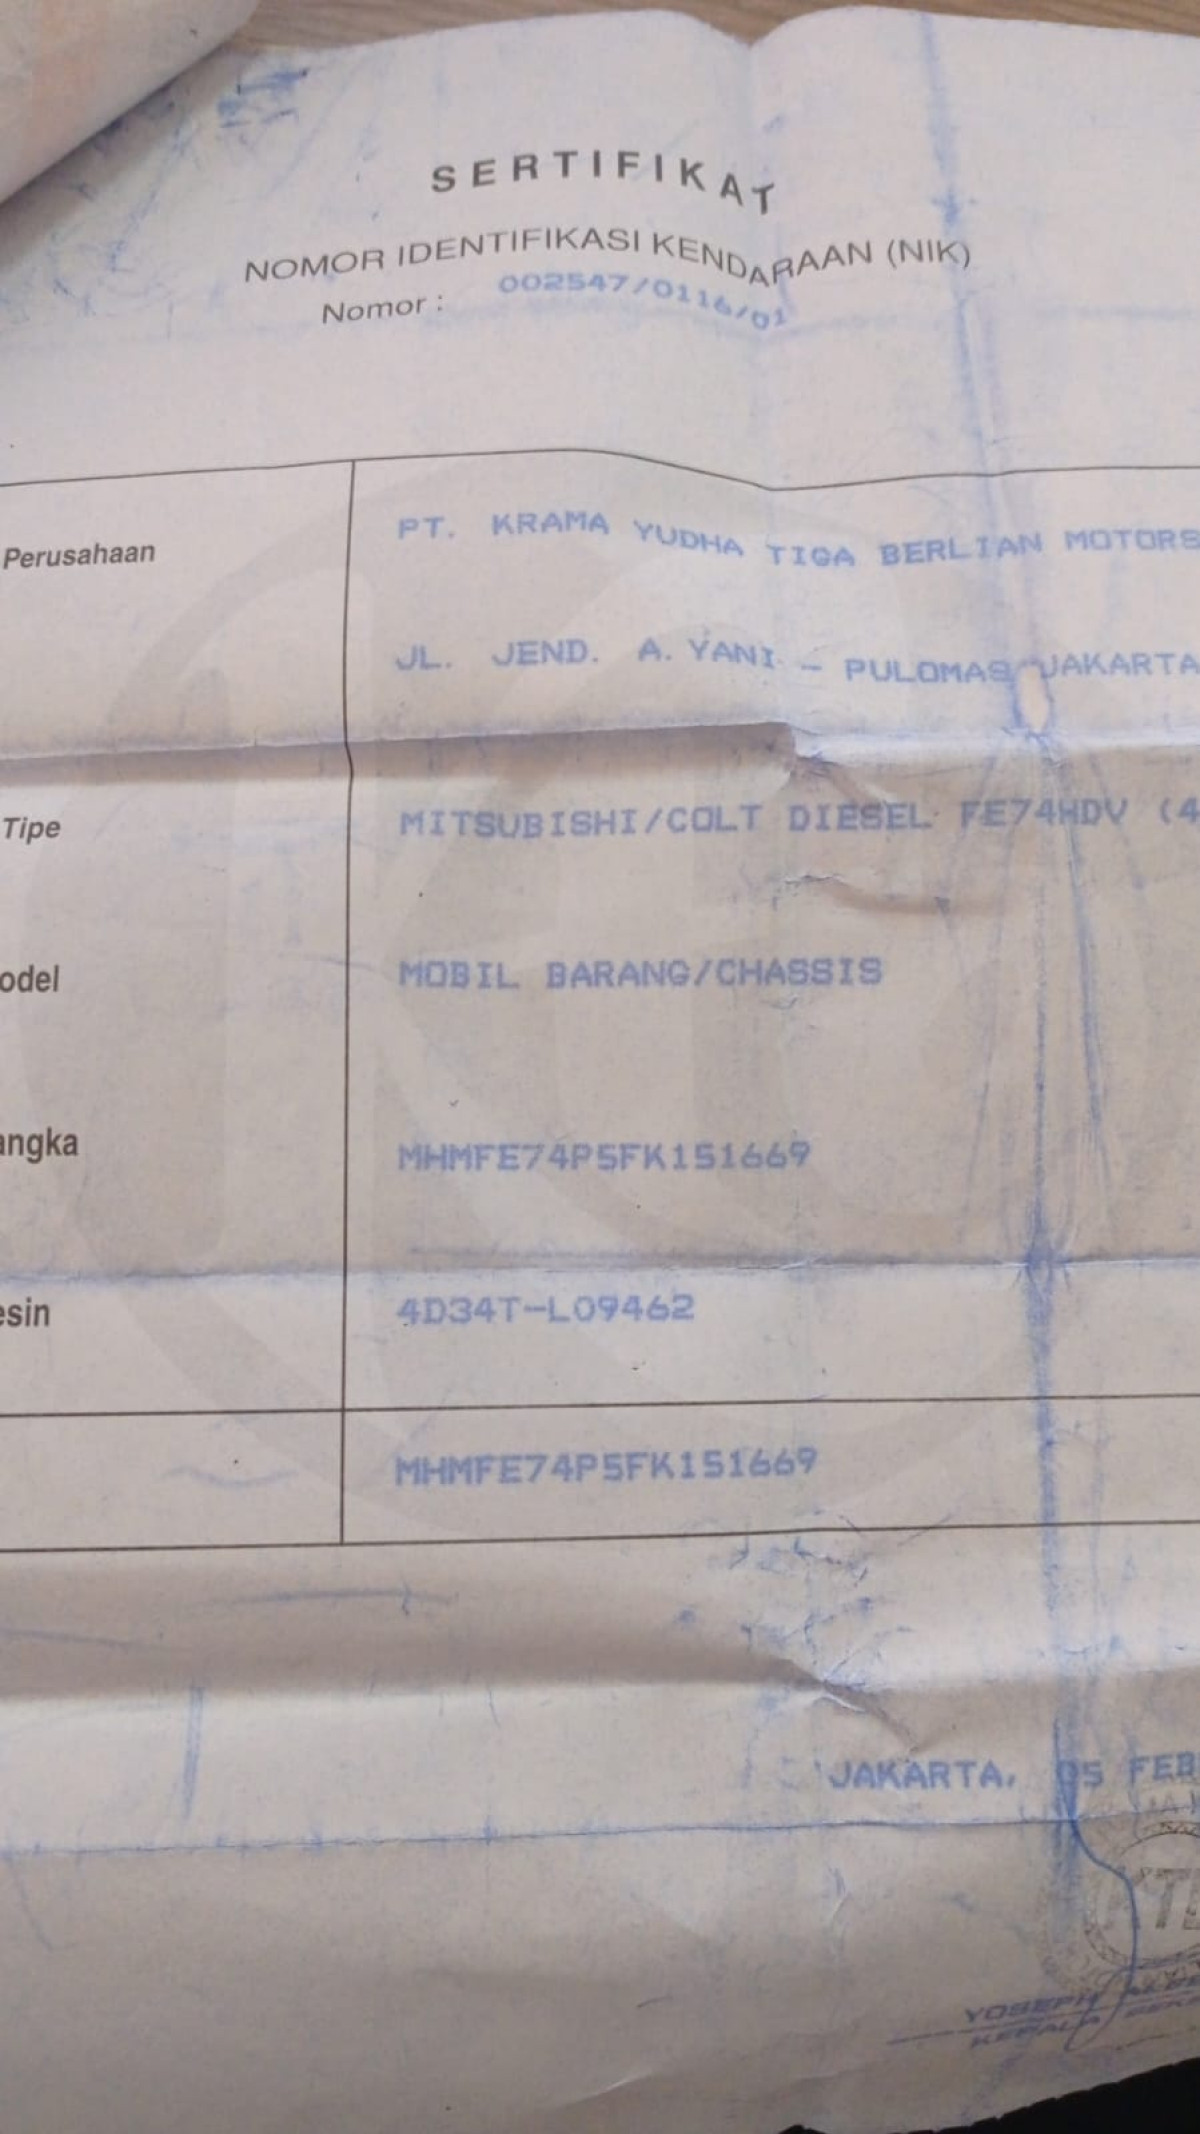 SERTIFIKAT
NOMOR IDENTIFIKASI KENDARAAN (NIK)
Nomor : 002547/0116/01
Perusahaan PT. KRAMA YUDHA TIGA BERLIAN MOTORS
JL. JEND. A. YANI - PULOMAS JAKARTA
Tipe MITSUBISHI/COLT DIESEL FE74HDV (4
odel MOBIL BARANG/CHASSIS
angka MHMFE74P5FK151669
esin 4D34T-L09462
MHMFE74P5FK151669
JAKARTA, 05 FEB
KTB
YOSEPH
KEPALA